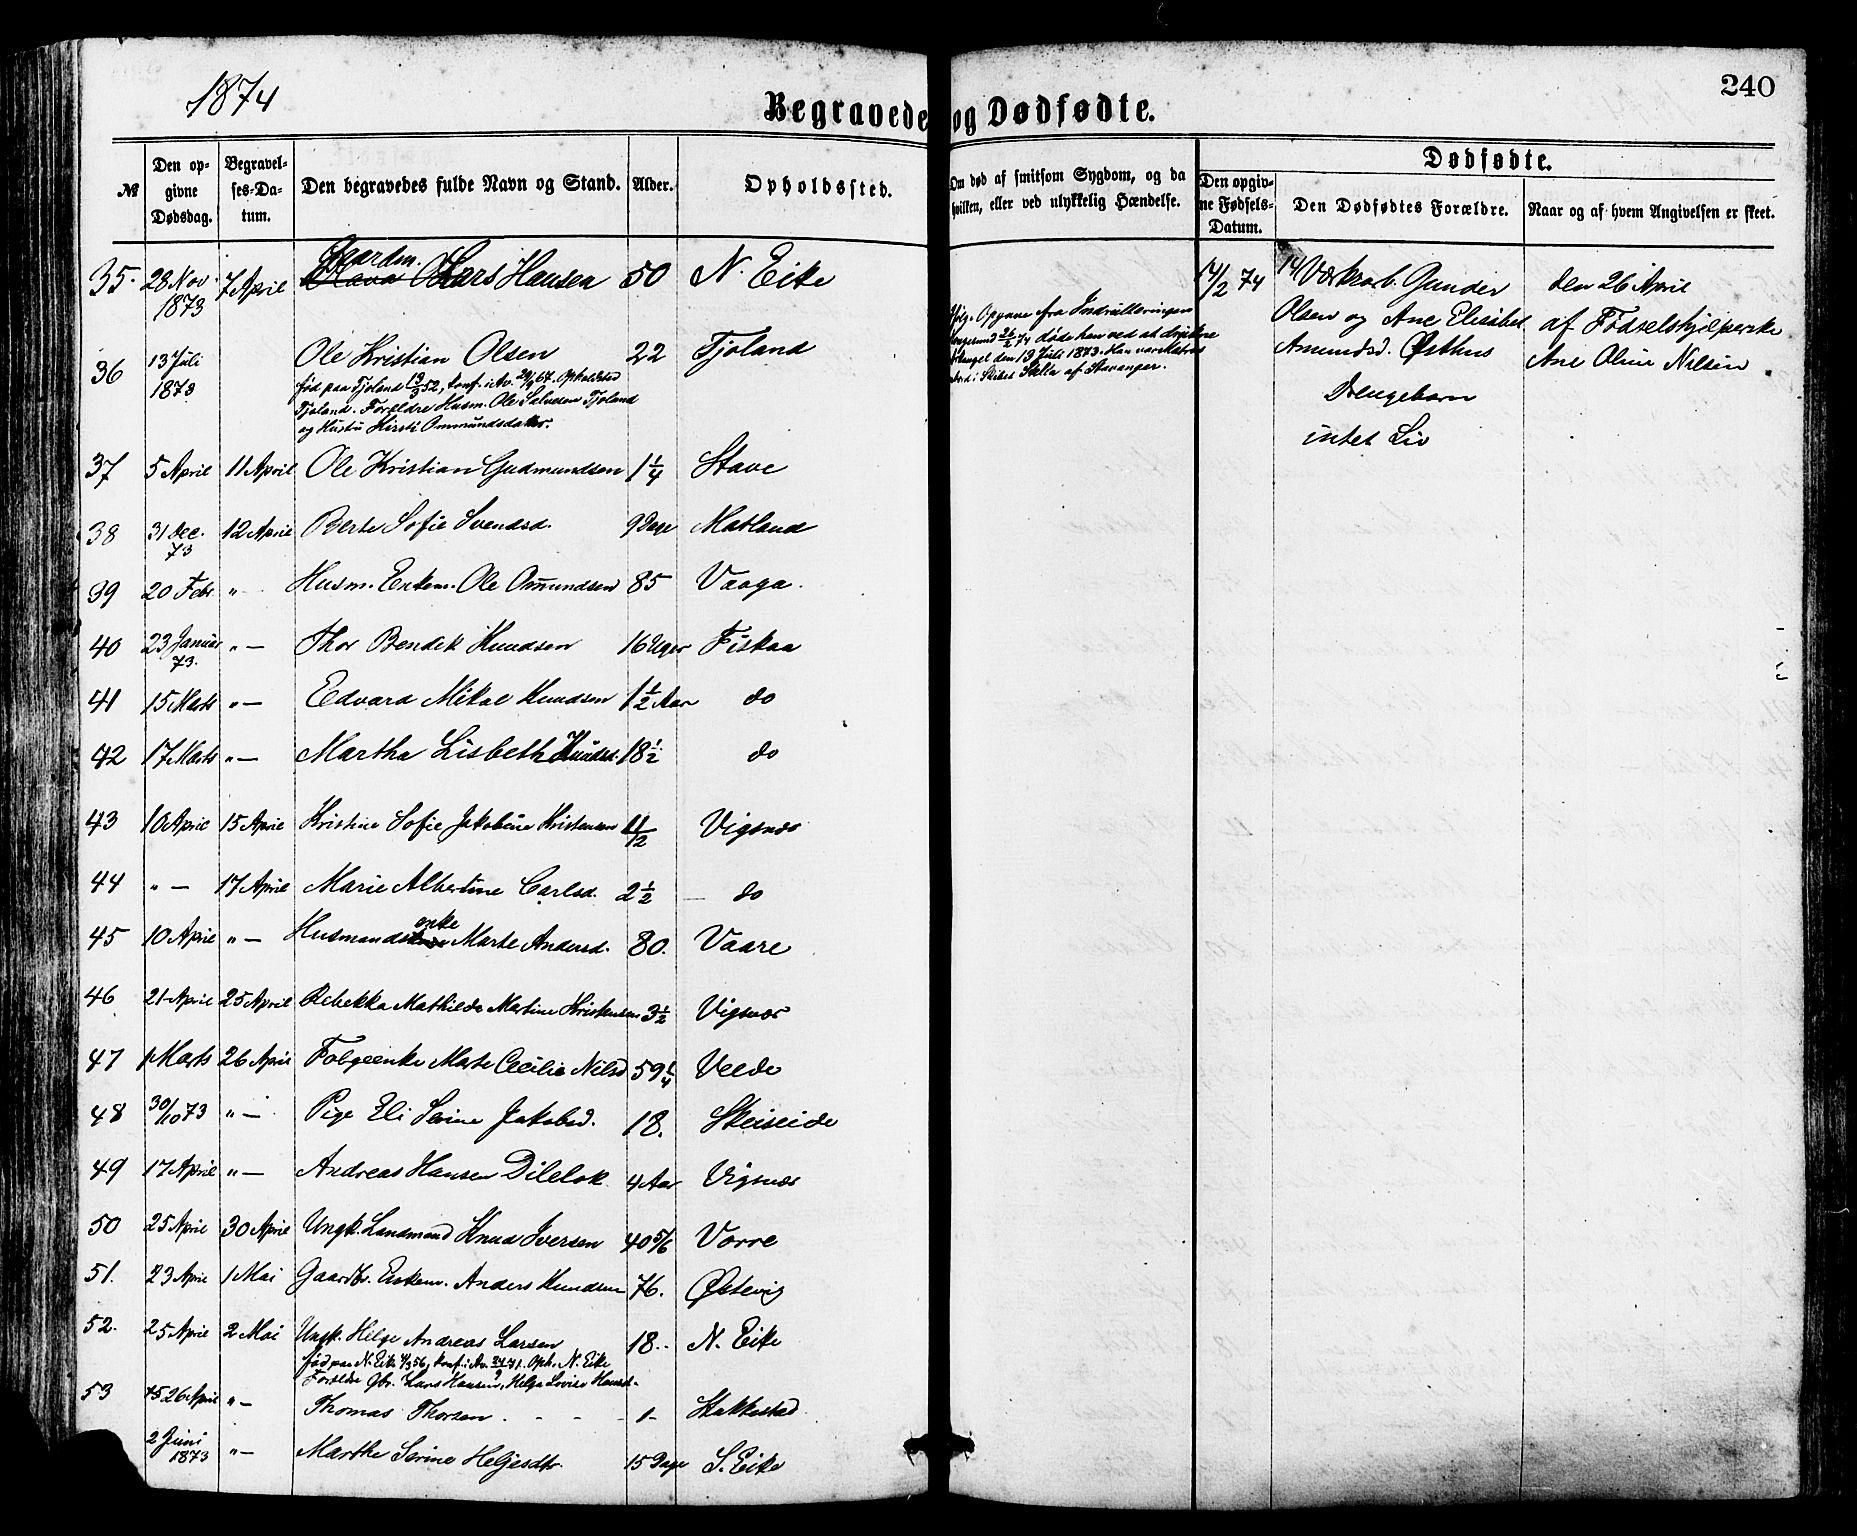 1874
240
Begravede og Dødfødte.
№ Den opgivne Dødsdag. Begravelses-Datum. Den begravedes fulde Navn og Stand. Alder. Opholdssted. Om død af smitsom Sygdom, og da hvilken, eller ved ulykkelig Hændelse.
Dødfødte.
Den opgivne Fødsels-Datum. Den Dødfødtes Forældre. Naar og af hvem Angivelsen er skeet.
35. 28 Nov. 1873 7 April Gaardm. Lars Hansen 50 N. Eike
36 13 Juli 1873 Ole Kristian Olsen 22 Tjoland
fød paa Tjoland 19/3 52, konf. i Av. 29/9 67. Opholdsted
Tjoland. Forældre Husm. Ole Salvesen Tjoland
og Hustru Kirsti Ommundsdatter.
Ifølge Opgave fra Indrulleringen
26/2 74 døde han ved at drukne
13 Juli 1873. Han var Matros
ombord i Skibet Stella af Stavanger.
14/2 74 Værksarb. Gunder
Olsen og Ane Elisabet
Amundsd. Østhus
Drengebarn
intet Liv
den 26 April
af Fødselshjelperske
Ane Oline Nilsen.
37 5 April 11 April Ole Kristian Gudmundsen 1 1/4 Stave
38 31 Dec. 73 12 April Berte Sofie Svendsd. 9 Dage Matland
39 20 Febr " Husm. Enkem. Ole Omundsen 85 Vaaga.
40 23 Januar 73. "— Thor Bendik Knudsen 16 Uger Fiskaa
41 15 Marts "— Edvard Mikal Knudsen 1 1/2 Aar do
42 17 Marts "— Martha Lisbeth Knudsd. 18 1/2 do
43 10 April 15 April Kristine Sofie Jakobine Kristensen 1 1/2 Vigsnæs
44 "— 17 April Marie Albertine Carlsd. 2 1/2 — do
45 10 April "— Husmandsenke Marte Andersd. 80. Vaare
46 21 April 25 April Rebekka Mathilde Martine Kristensen 3 1/2 Vigsnæs
47 1 Marts 26 April Folgeenke Marte Cecilie Nilsd 59 1/4 Velde
48 30/10 73 "— Pige Eli Serine Jakobsd. 18. Skeiseide
49 17 April "— Andreas Hansen Dilelok 4 Aar Vigsnæs
50 25 April 30 April Ungk. Landmand Knud Iversen 40 5/6 Vorre
51. 23 April 1 Mai Gaardbr. Enkem. Anders Knudsen 76. Østevig
52. 25 April 2 Mai Ungk. Helge Andreas Larsen 18.. N. Eike
fød paa N. Eike 4/3 56, konf. i Av. 24/9 71. Oph. N. Eike
Forældre Gbr. Lars Hansen, Helga Lovise Hansd.
53 26 April "— Thomas Thorsen. - - - 1- Stakkestad
2 Juni 1873 "— Marthe Serine Helgesdtr. 15 Dage S. Eike